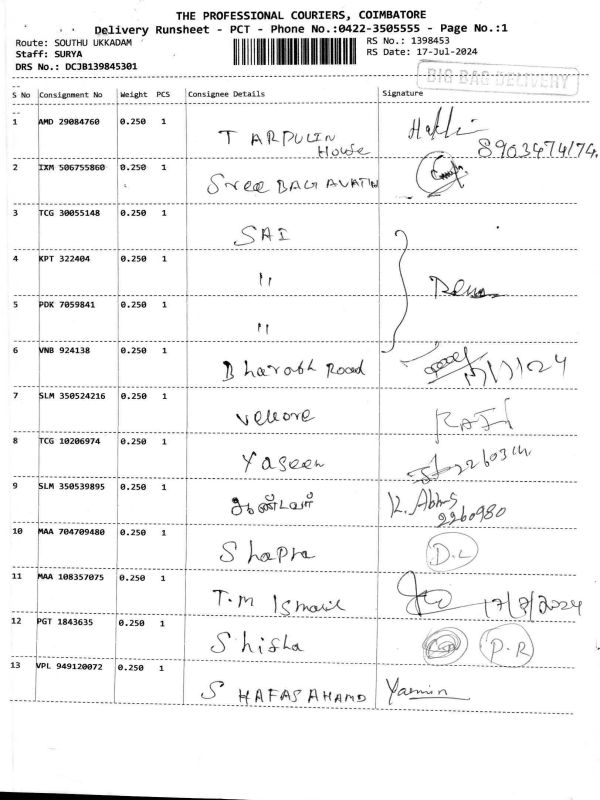 THE PROFESSIONAL COURIERS, COIMBATORE
Delivery Runsheet - PCT - Phone No.:0422-3505555 - Page No.:1
Route: SOUTHU UKKADAM
RS No.: 1398453
Staff: SURYA
RS Date: 17-Jul-2024
DRS No.: DCJB139845301
BIG BAG DELIVERY
S No Consignment No Weight PCS Consignee Details Signature
1 AMD 29084760 0.250 1 TARPULIN House
8903474174.
2 IXM 506755860 0.250 1 Sree BAGAVATHI
3 TCG 30055148 0.250 1 SAI
4 KPT 322404 0.250 1 "
5 PDK 7059841 0.250 1 "
6 VNB 924138 0.250 1 Bharath Road
7 SLM 350524216 0.250 1 vellore RAJ
8 TCG 10206974 0.250 1 Yaseen
9 SLM 350539895 0.250 1 ஆண்டவர் K. Abbas
2260980
10 MAA 704709480 0.250 1 Shapra D.L
11 MAA 108357075 0.250 1 T.M Ismail 17/7/2024
12 PGT 1843635 0.250 1 Shisha P.R
13 VPL 949120072 0.250 1 SHAFAS AHAMD Yasmin